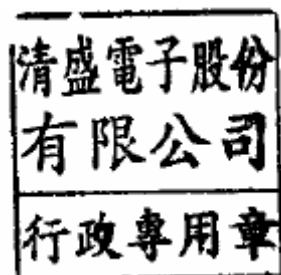 清盛電子股份
有限公司
行政專用章